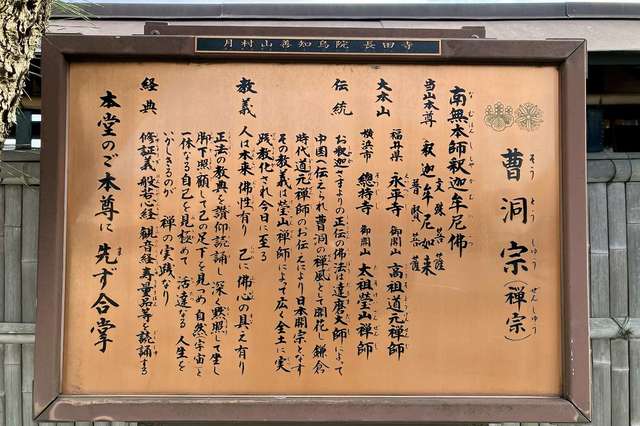 月村山善知鳥院 長田寺
曹洞宗(禅宗)
そうとうしゅう ぜんしゅう
南無本師釈迦牟尼佛
当山本尊 釈迦牟尼如来
文殊菩薩
普賢菩薩
大本山
福井県 永平寺 御開山 高祖道元禅師
横浜市 總持寺 御開山 太祖瑩山禅師
伝統
お釈迦さまよりの正伝の佛法は達磨大師によって
中国へ伝えられ曹洞の禅風として開花し鎌倉
時代道元禅師のお伝えにより日本開宗となす
その教義は瑩山禅師によって広く全土に実
践教化され今日に至る
教義
人は本来佛性有り 己に佛心の具え有り
正法の教典を讃仰読誦し深く黙照して坐し
脚下照顧して己の足下を見つめ自然(宇宙)と
一体なる自己を見極めて 活達なる人生を
いかしきるのが 禅の実践なり
経典
修証義 般若心経 観音経 寿量品等を読誦する
本堂のご本尊に 先ず合掌